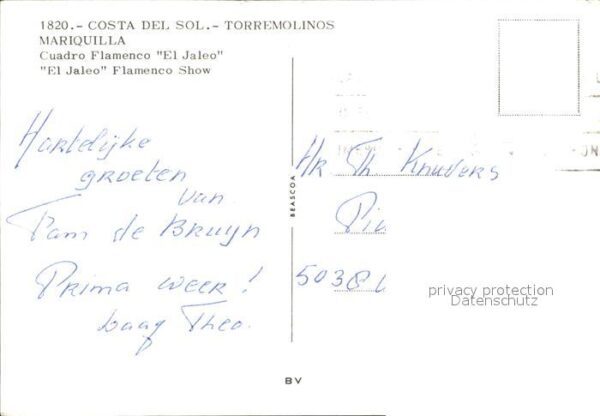 1820.- COSTA DEL SOL.- TORREMOLINOS
MARIQUILLA
Cuadro Flamenco "El Jaleo"
"El Jaleo" Flamenco Show
Hartelijke
groeten
van
Fam de Bruyn
Prima weer!
Daag Theo.
BEASCOA
Hr Th Knuvers
Pi
5038
privacy protection
Datenschutz
BV